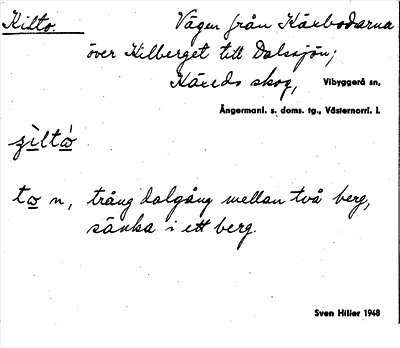 Kilto. Vägen från Käxbodarna
över Kilberget till Dalssjön;
Käxeds skog, Vibyggerå sn,
Ångermanl. s. doms. tg., Västernorrl. l.
to n, trång dalgång mellan två berg,
sänka i ett berg.
Sven Hiller 1948